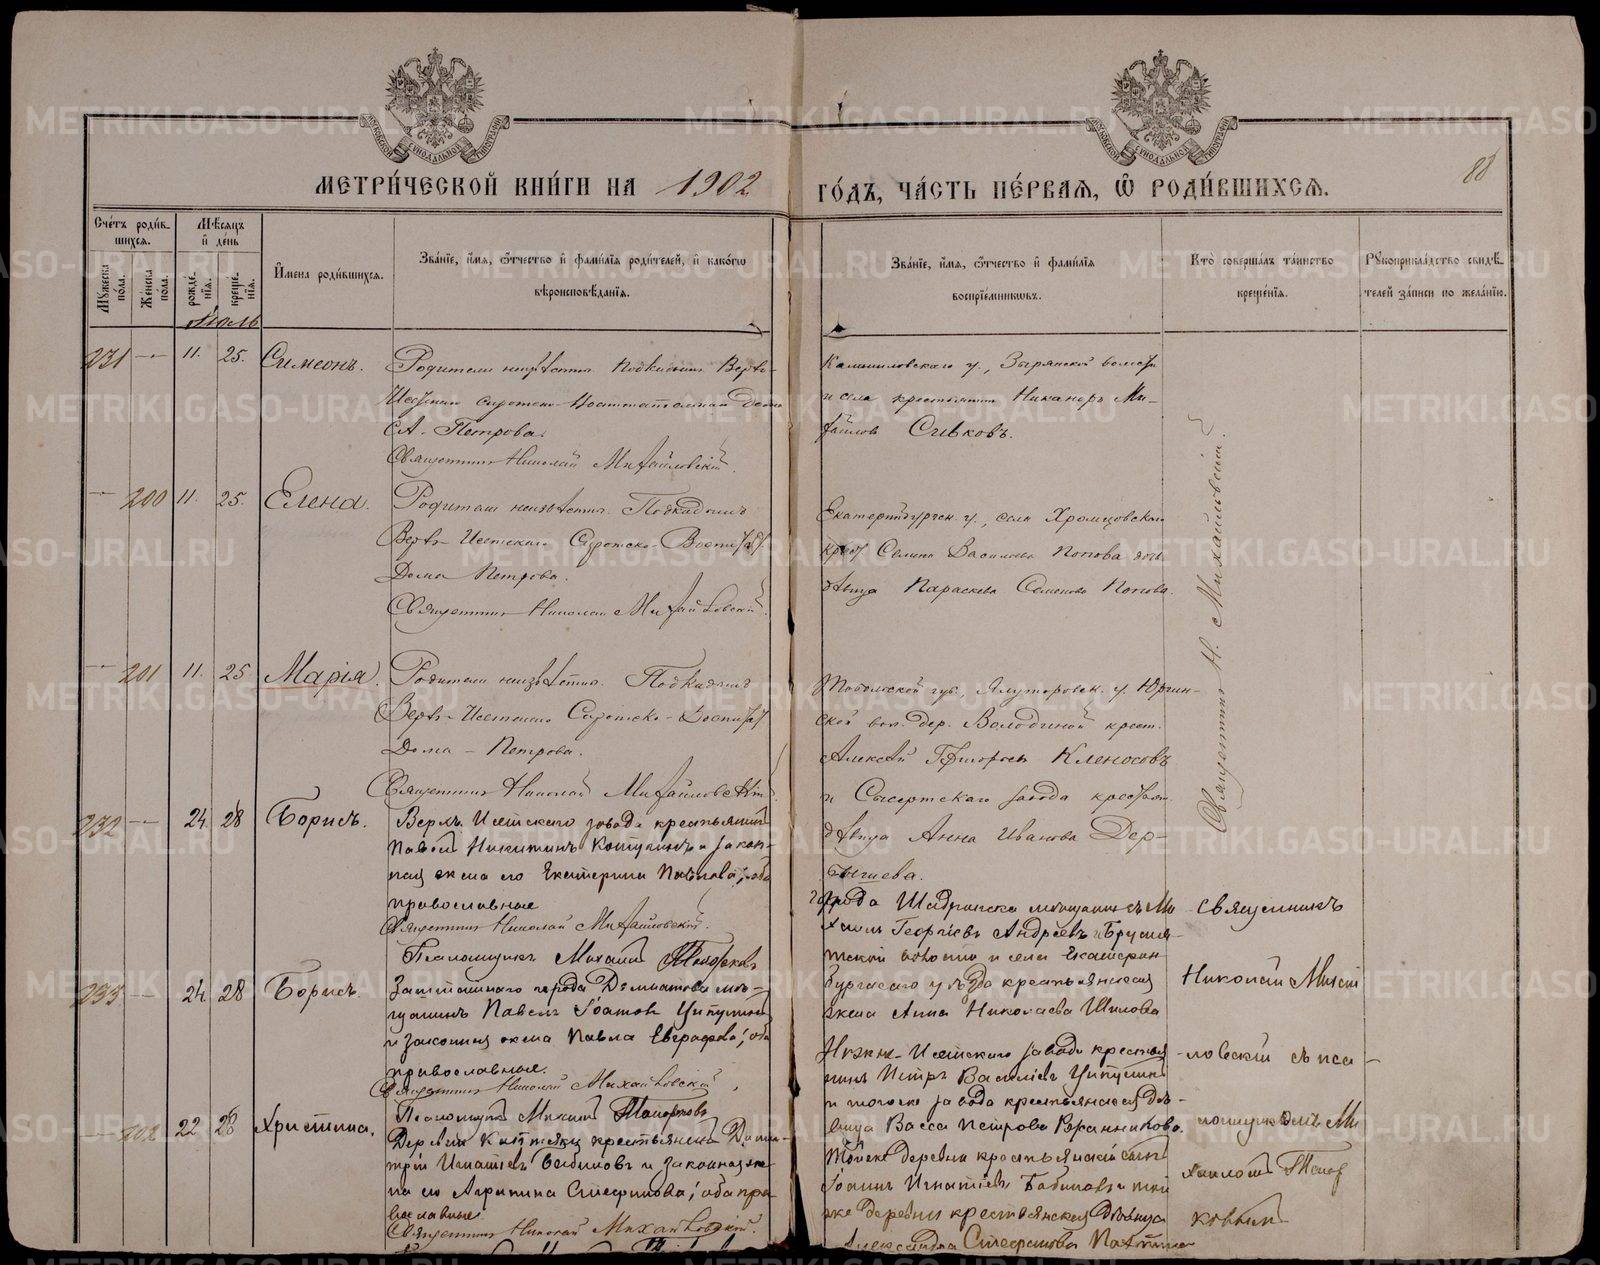 МЕТРИ́ЧЕСКОЙ КНИ́ГИ НА 1902
ГО́ДЪ, ЧА́СТЬ ПЕ́РВАЯ, Ѡ РОДИ́ВШИХСЯ.
88
Сче́тъ роди́в-
шихся.
Му́жеска по́ла.
Же́нска по́ла.
Мѣ́сяцъ
и҆ де́нь
рожде́-
нїя.
креще́-
нїя.
И҆мена роди́вшихся.
Зва́нїе, и҆́мя, ѻ҆́тчество и҆ фами́лїѧ роди́телей, и҆ како́гѡ
вѣроисповѣ́данїя.
Зва́нїе, и҆́мя, ѻ҆́тчество и҆ фами́лїѧ
воспрїе́мниковъ.
Кто̀ соверша́лъ та́инство
креще́нїя.
Рукоприкла́дство свидѣ́-
телей за́писи по жела́нїю.
Июль
231 — 11. 25. Симеонъ.
Родители неизвѣстны. Подкидышъ Верхъ-
Исетскаго Сиротско-Воспитательнаго Дома
Петрова.
Священникъ Николай Михайловскій.
Камышловскаго у., Зырянской волости
и села крестьянинъ Никаноръ Ми-
хайловъ Сивковъ.
— 200 11. 25. Елена.
Родители неизвѣстны. Подкидышъ
Верхъ-Исетскаго Сиротско-Воспитат.
Дома Петрова.
Священникъ Николай Михайловскій.
Екатеринбургск. у., села Хромцовскаго
Васильева Попова дочь
дѣвица Параскева Семенова Попова.
— 201 11. 25 Марія.
Родители неизвѣстны. Подкидышъ
Верхъ-Исетскаго Сиротско-Воспитат.
Дома – Петрова.
Священникъ Николай Михайловскій.
Тобольской губ., Ялуторовск. у. Юргин-
ской вол. дер. Володиной крест.
Алексѣй Григорьевъ Клевосовъ
и Сысертскаго завода крестьян.
дѣвица Анна Иванова Дер-
бышева.
Священникъ Н. Михайловскій.
232 — 24. 28 Борисъ.
Верхъ Исетскаго завода крестьянинъ
Павелъ Никитинъ и закон-
ная жена его Екатерина Павлова; оба
православные
Священникъ Николай Михайловскій.
Псаломщикъ Михаилъ Топорковъ
города Шадринска мѣщанинъ Ми-
хаилъ Георгіевъ Андреевъ и
волости и села Екатерин-
бургскаго уѣзда крестьянская
жена Анна Николаева Шилова
Священникъ
Николай Михай
233 — 24. 28 Борисъ.
Заштатнаго города Далматова мѣ-
щанинъ Павелъ Іоановъ Ципулинъ
и законная жена Павла Евграфова; оба
православные.
Священникъ Николай Михайловскій
Псаломщикъ Михаилъ Топорковъ
Нижне-Исетскаго завода крестья-
нинъ Петръ Василіевъ Ципулинъ
и тогоже завода крестьянская дѣ-
вица Васса Петрова
ловскій съ пса-
ломщикомъ Ми
— 202 22 28 Христина.
Деревни крестьянинъ Дими-
трій Игнатіевъ Бабиновъ и законная же-
на его Агрипина Стефанова; оба пра-
вославные
Священникъ Николай Михайловскій.
Тойже деревни крестьянскій сынъ
Іоаннъ Игнатіевъ Бабиновъ и той
же деревни крестьянская дѣвица
Александра Стефанова
хаиломъ Топор
ковымъ